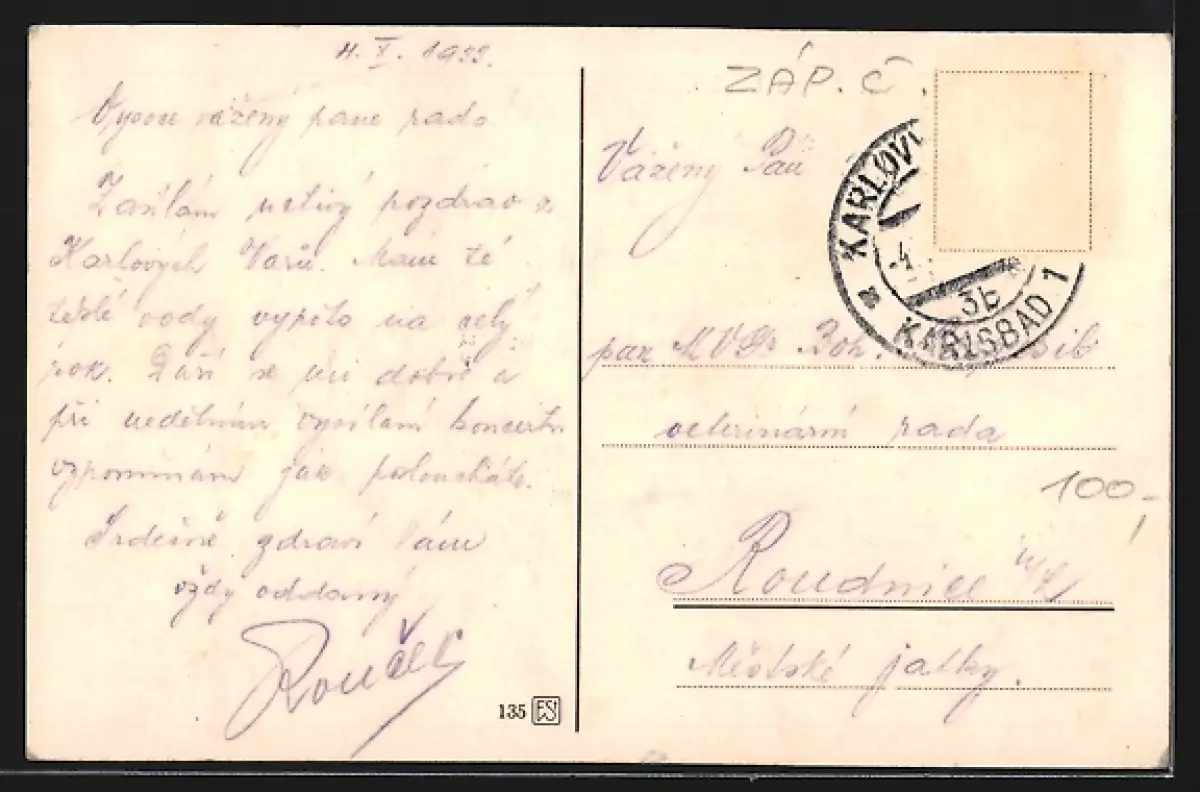 4. X. 1933.
Vysoce vážený pane rado
Zasílám uctivý pozdrav z
Karlových Varů. Mám té
teplé vody vypito na celý
rok. Daří se mi dobře a
při nedělním vysílání koncertu
vzpomínám jak poloucháte.
Srdečně zdraví Vám
vždy oddaný
Rouček
135 ES
ZÁP. Č.
Vážený Pan
KARLOV
-4.
3b
KARLSBAD 1
pan MVDr Boh.
veterinární rada
100,-
Roudnice n/L
Městské jatky.